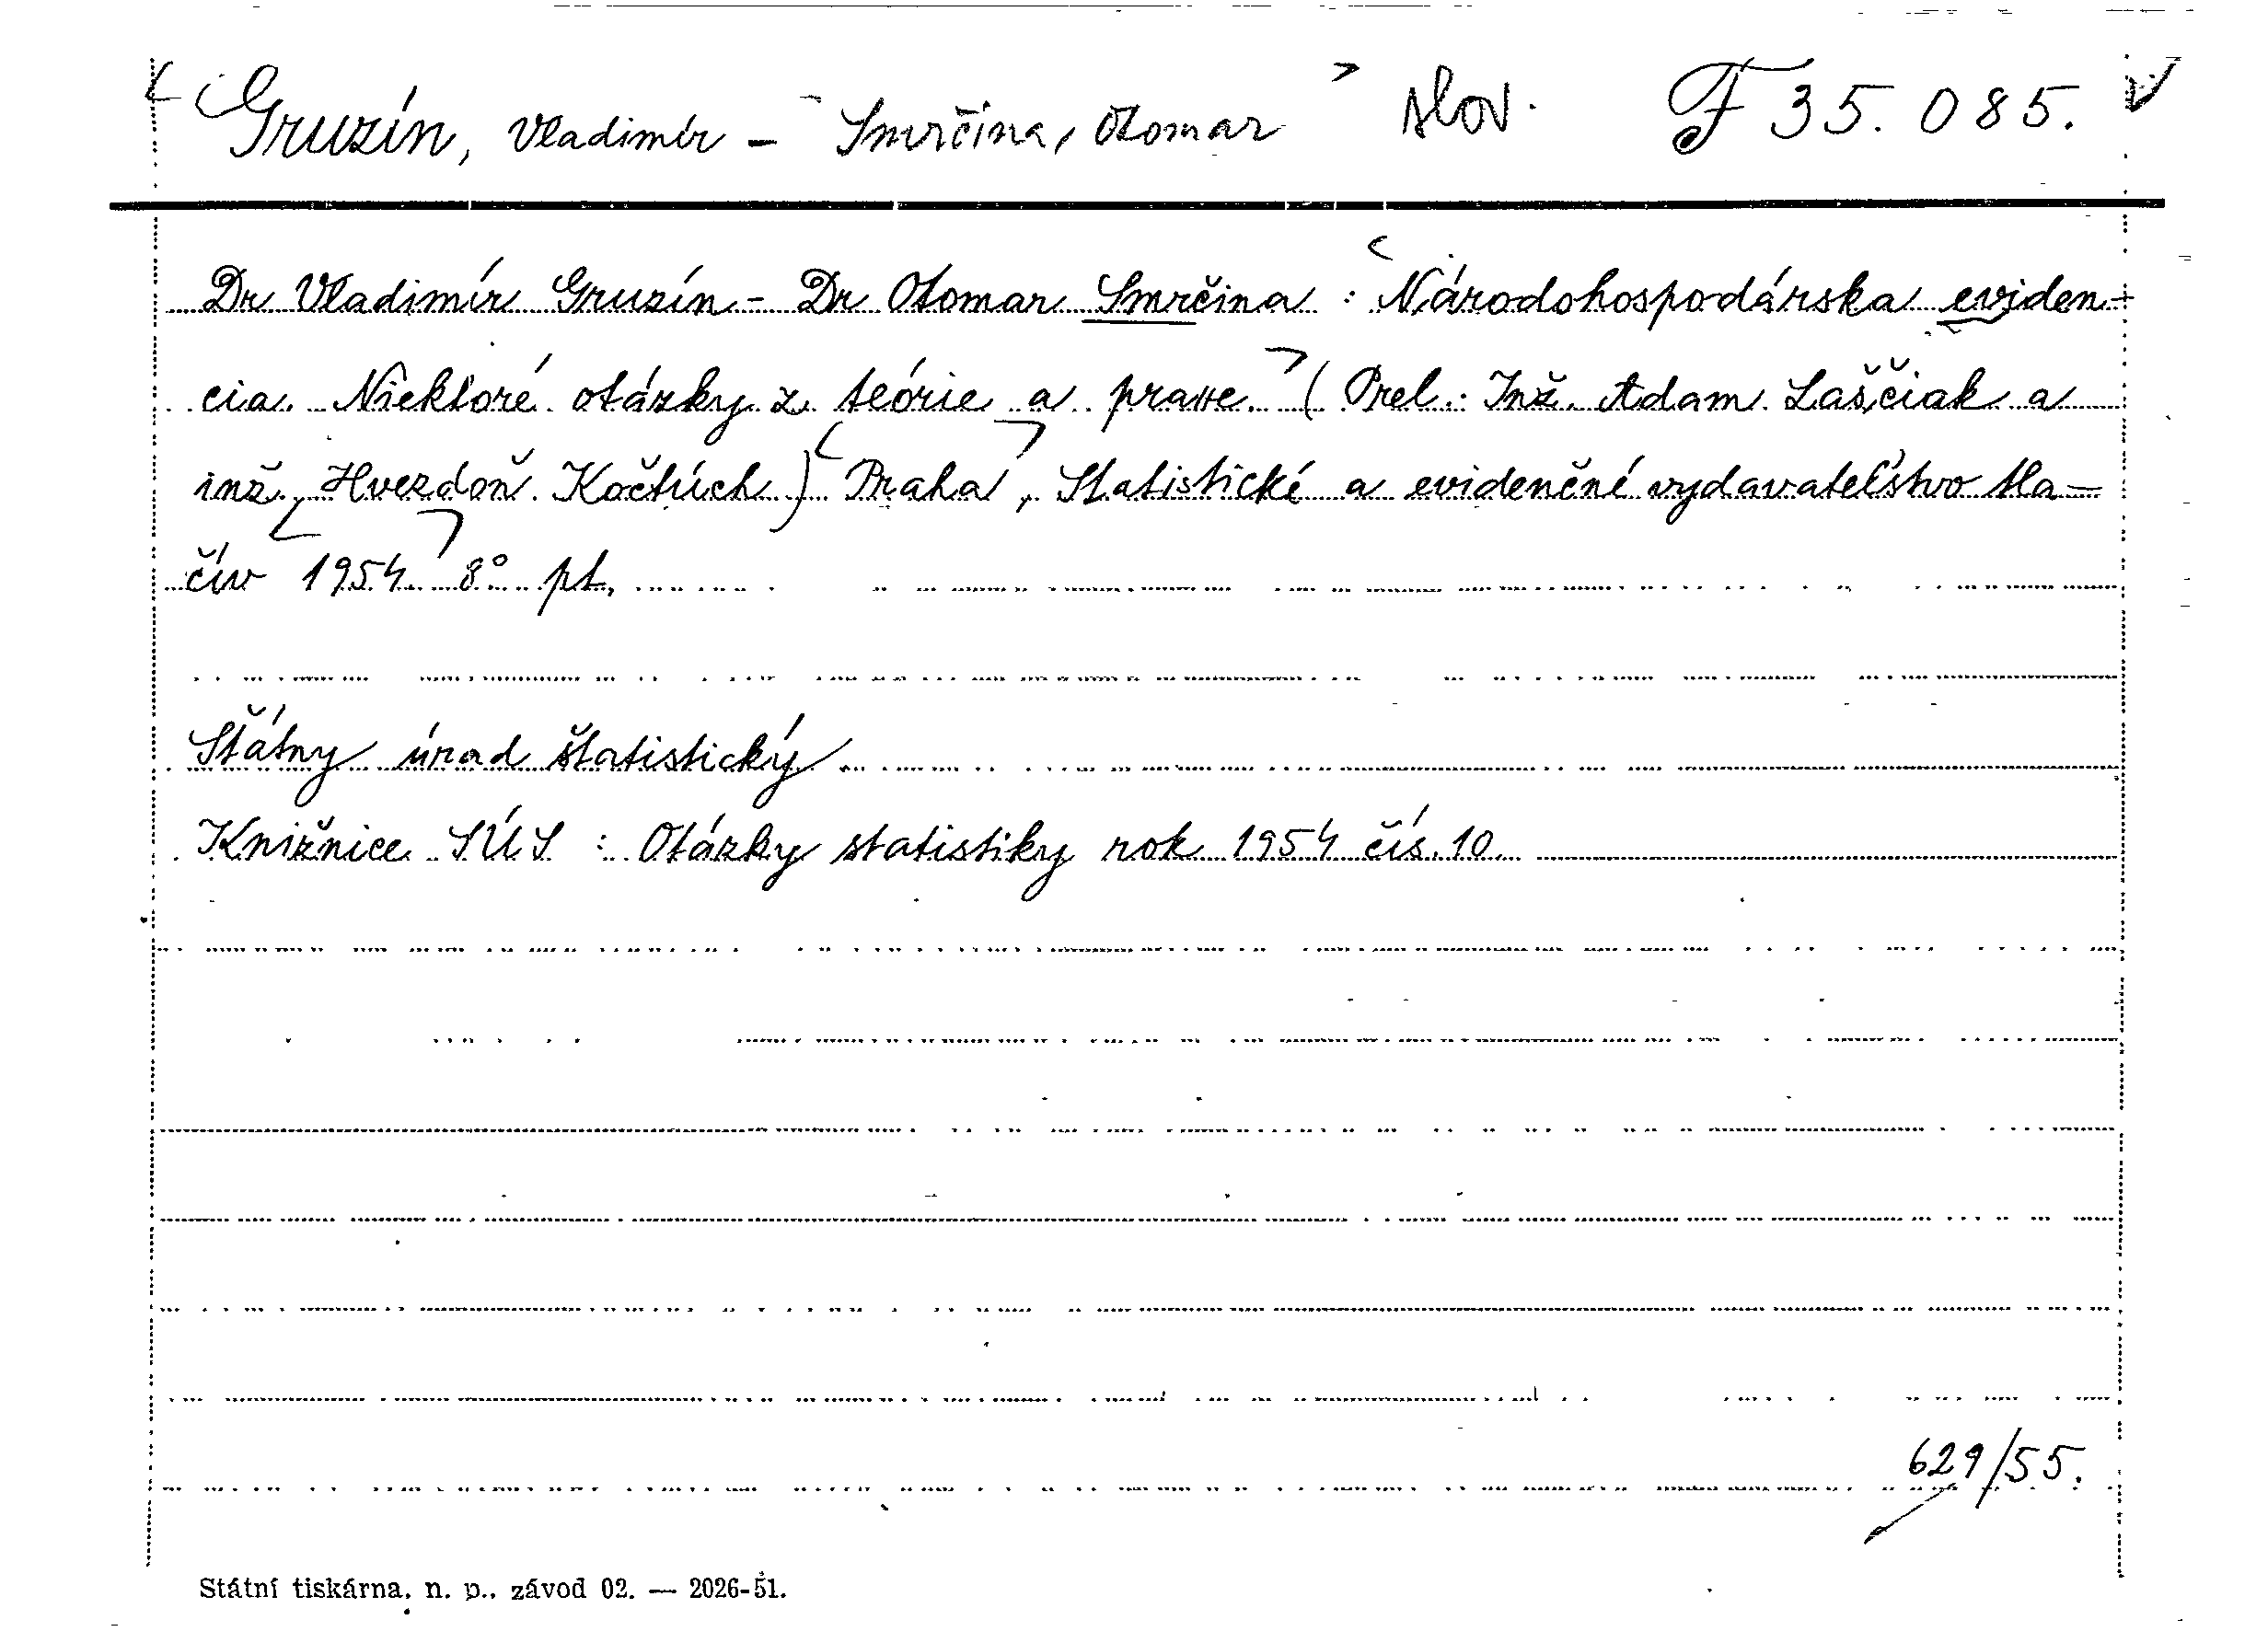 Gruzín, Vladimír - Smrčina, Otomar slov. F 35.085.
Dr Vladimír Gruzín - Dr Otomar Smrčina : Národohospodárska eviden-
cia. Niektoré otázky z teórie a praxe. (Prel.: Inž. Adam Laščiak a
inž. Hvezdoň Kočtúch) Praha, Statistické a evidenčné vydavateľstvo tla-
čív 1954 8° pt.
Štátny úrad štatistický
Knižnice SÚS : Otázky statistiky rok 1954 čís. 10
629/55.
Státní tiskárna, n. p., závod 02. — 2026-51.